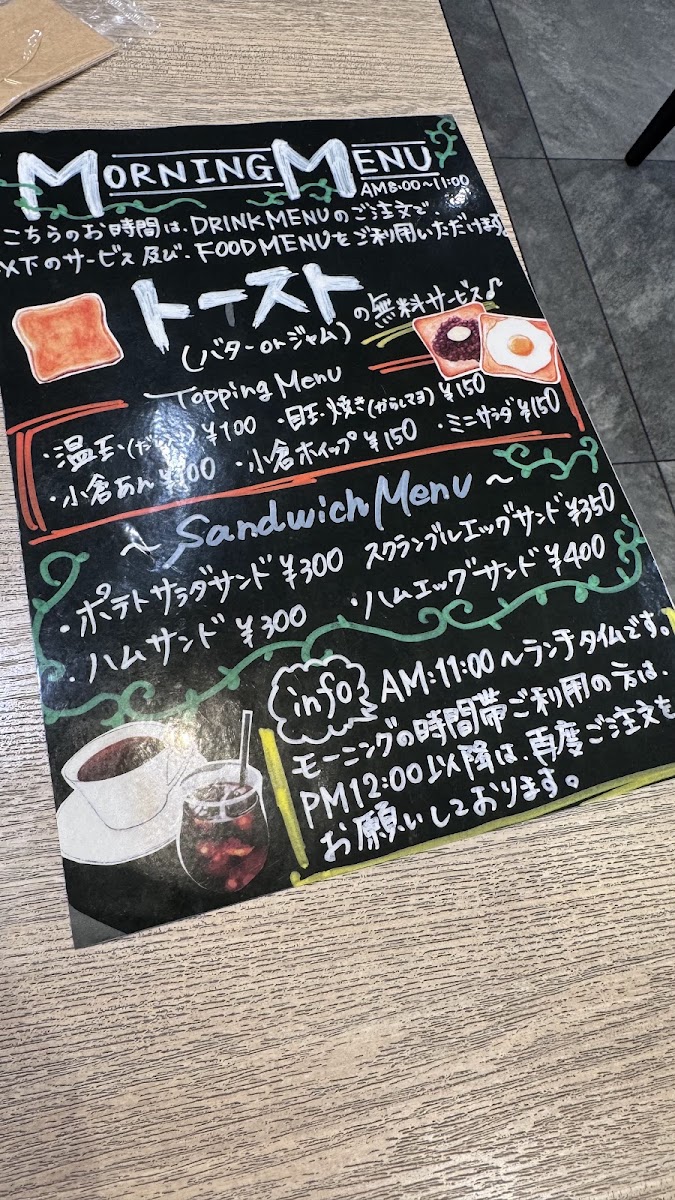 MORNING MENU
AM8:00~11:00
こちらのお時間は、DRINK MENUのご注文で、
以下のサービス及び、FOOD MENUをご利用いただけます。
トーストの無料サービス♪
(バターorジャム)
Topping Menu
・温玉(だし) ¥100 ・目玉焼き(からしマヨ) ¥150
・小倉あん ¥100 ・小倉ホイップ ¥150 ・ミニサラダ ¥150
~ Sandwich Menu ~
・ポテトサラダサンド ¥300 スクランブルエッグサンド ¥350
・ハムサンド ¥300 ・ハムエッグサンド ¥400
info AM:11:00~ランチタイムです。
モーニングの時間帯ご利用の方は、
PM12:00以降は、再度ご注文を
お願いしております。